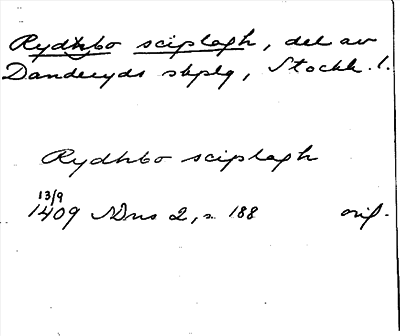 Rydhbo sciplagh, del av
Danderyds skplg, Stockh. l.
Rydhbo sciplagh
13/9
1409 NDns 2, s. 188 orig.